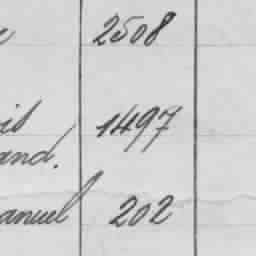 2508
1497
and.
anuel 202